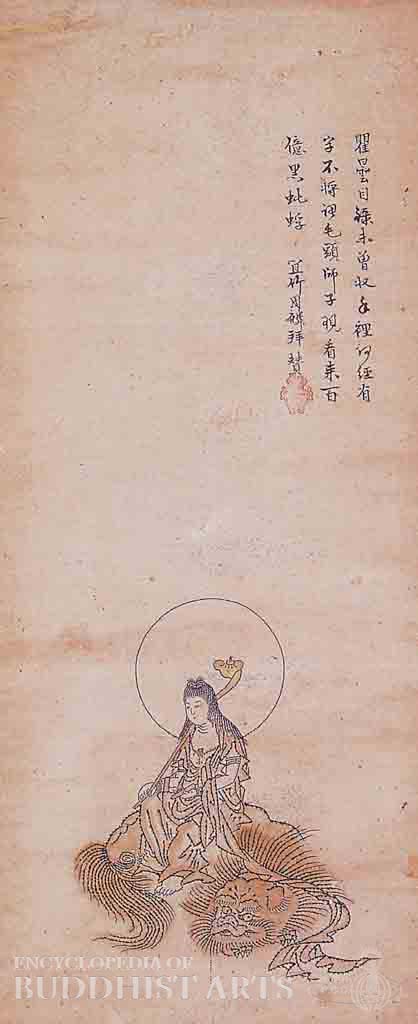 瞿曇目錄未曾收手裡何經有
字不將謂毛頭師子現看来百
億黑蚍蜉 宜竹周麟拜贊
ENCYCLOPEDIA OF
BUDDHIST ARTS